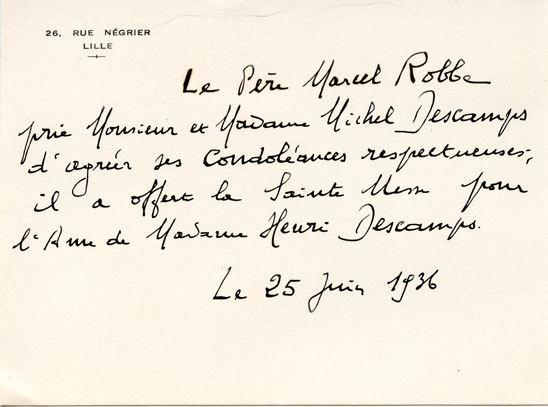 26, RUE NÉGRIER
LILLE
Le Père Marcel Robbe
prie Monsieur et Madame Michel Descamps
d'agréér ses Condoléances respectueuses,
il a offert la Sainte Messe pour
l'Ame de Madame Henri Descamps.
Le 25 Juin 1936